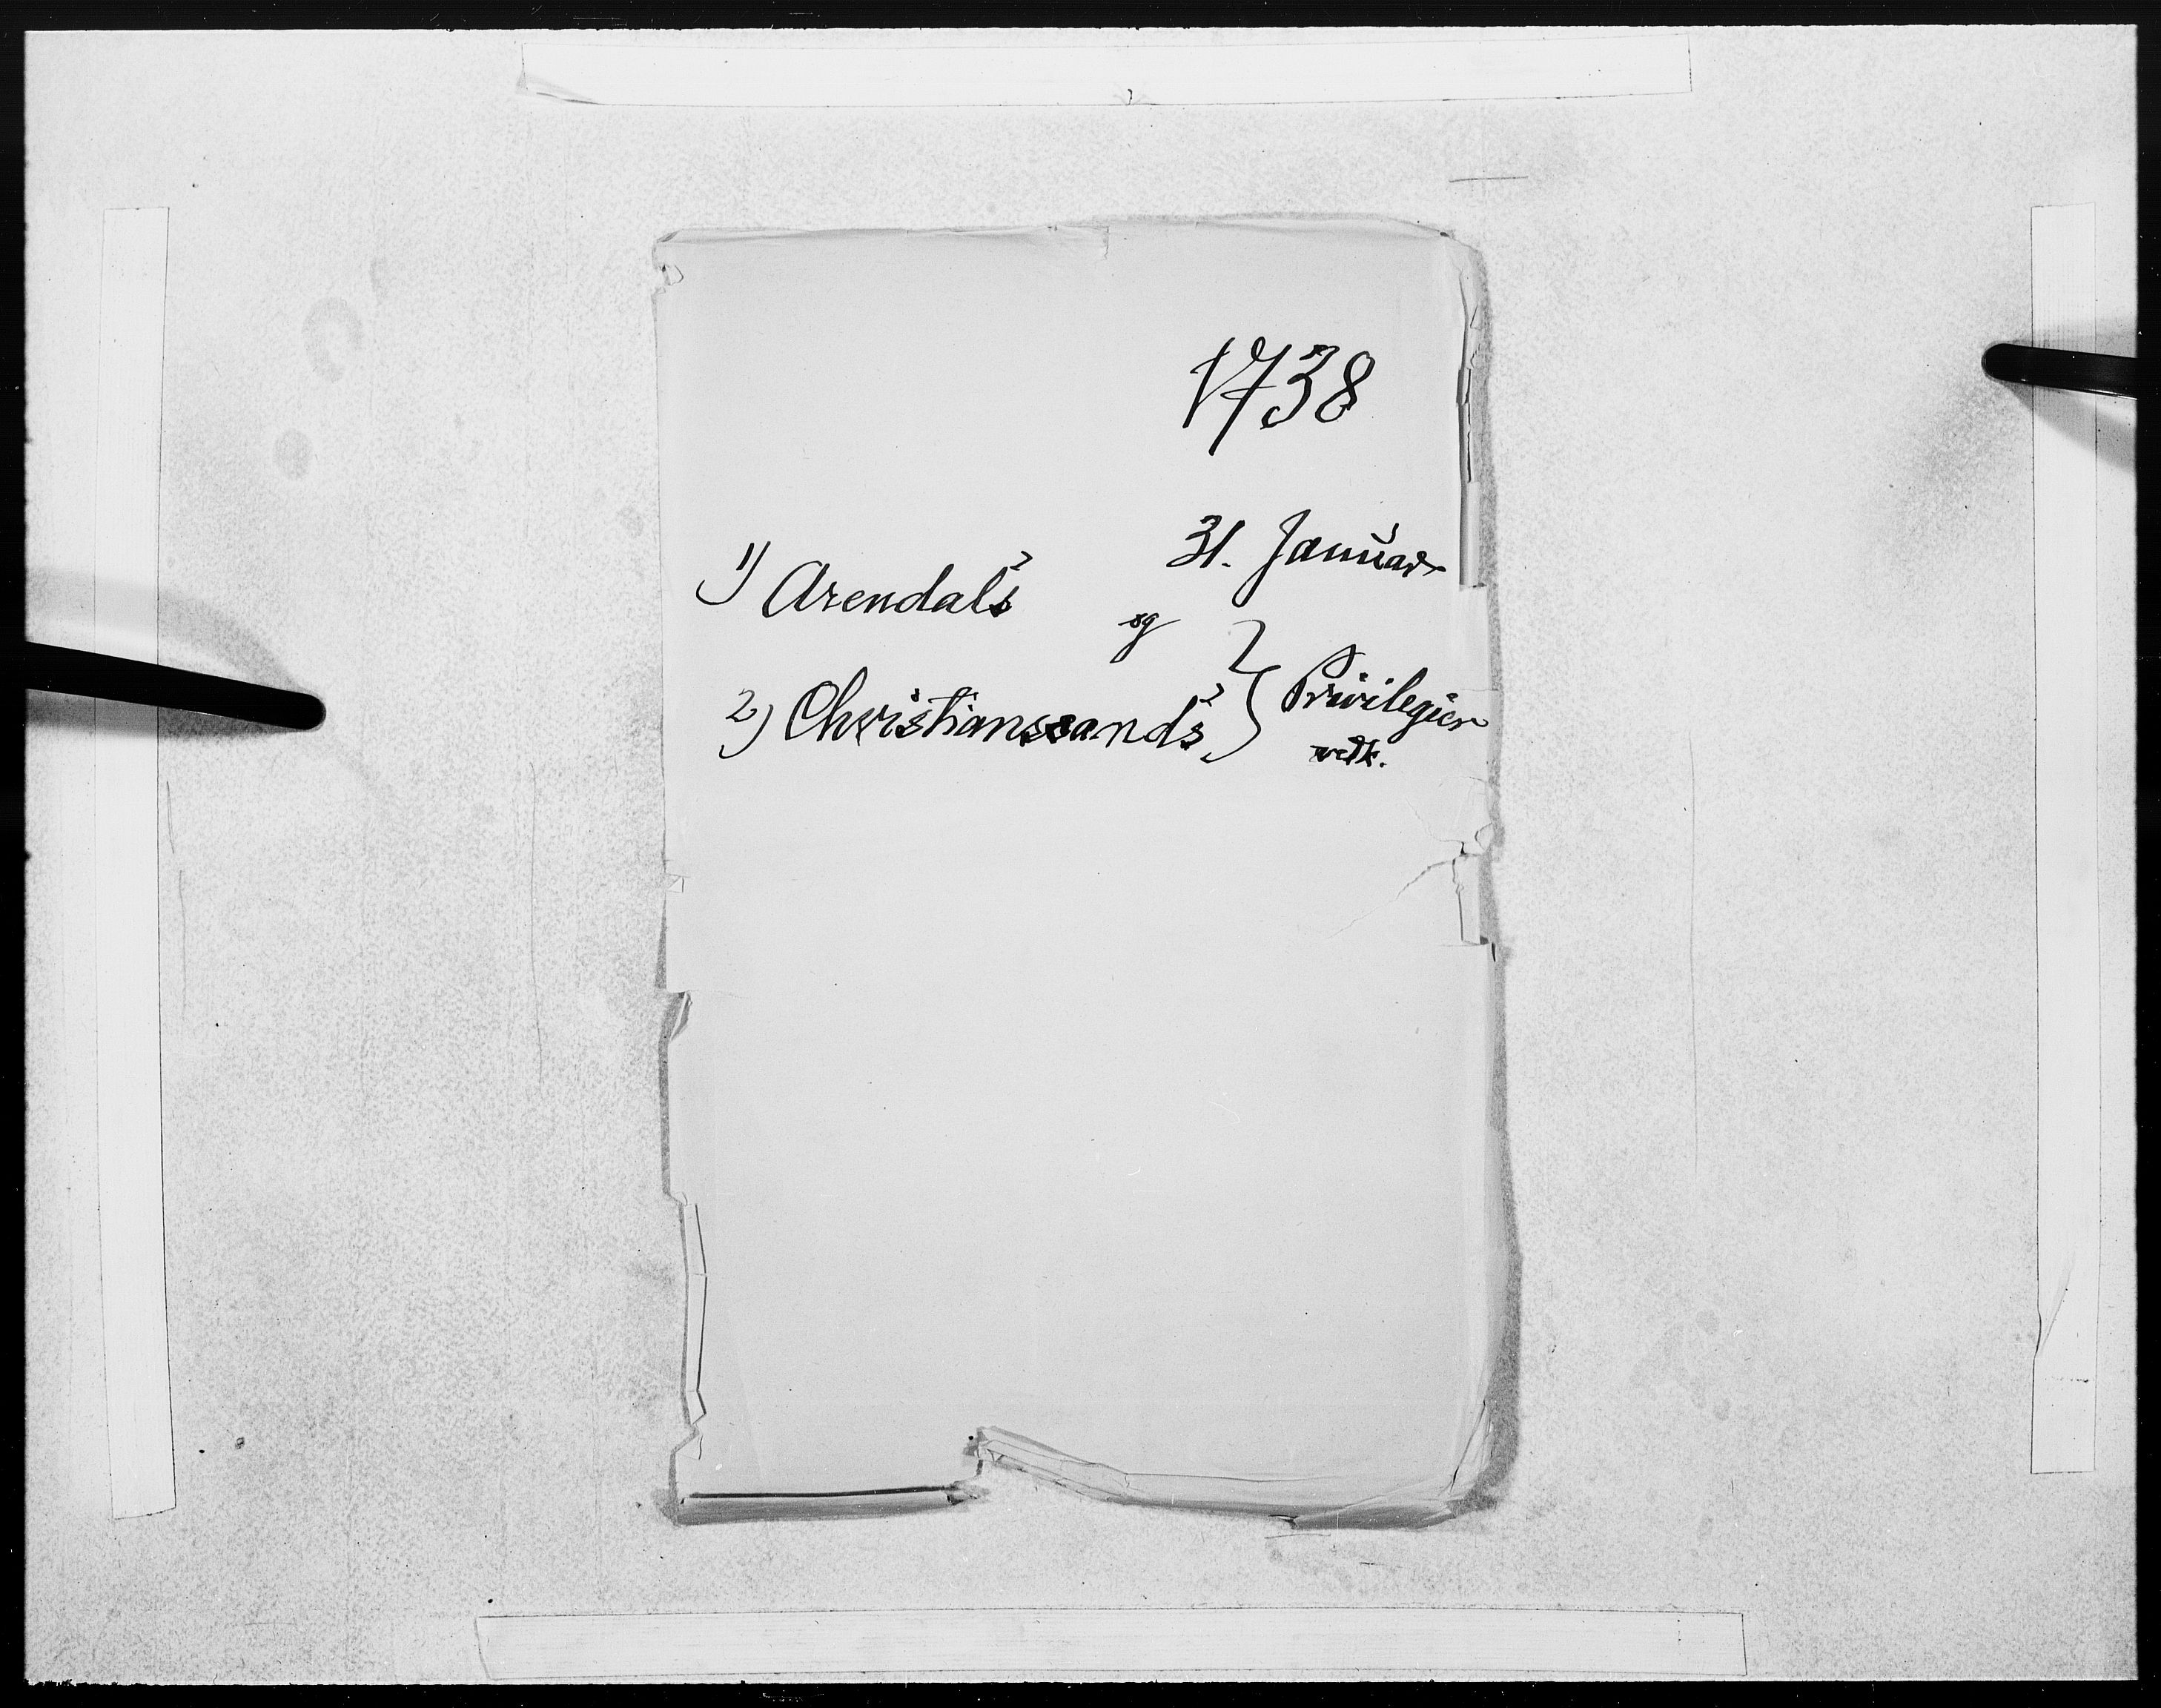 1738
31. Januar
1) Arendal's
og
2) Christianssand's } Privilegier
vedk.